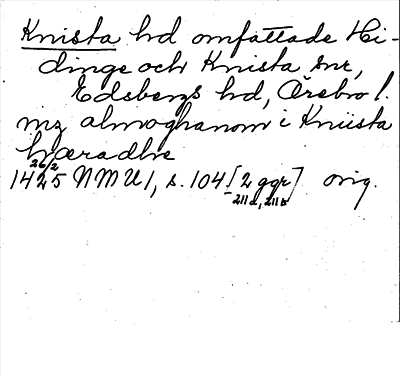 Knista hd omfattade Hi-
dinge och Knista snr,
Edsbergs hd, Örebro l.
mz almoghanom i Kniista
hæradhe
26/2
1425 NMU 1, s. 104 [2 ggr] orig.
211a, 211b